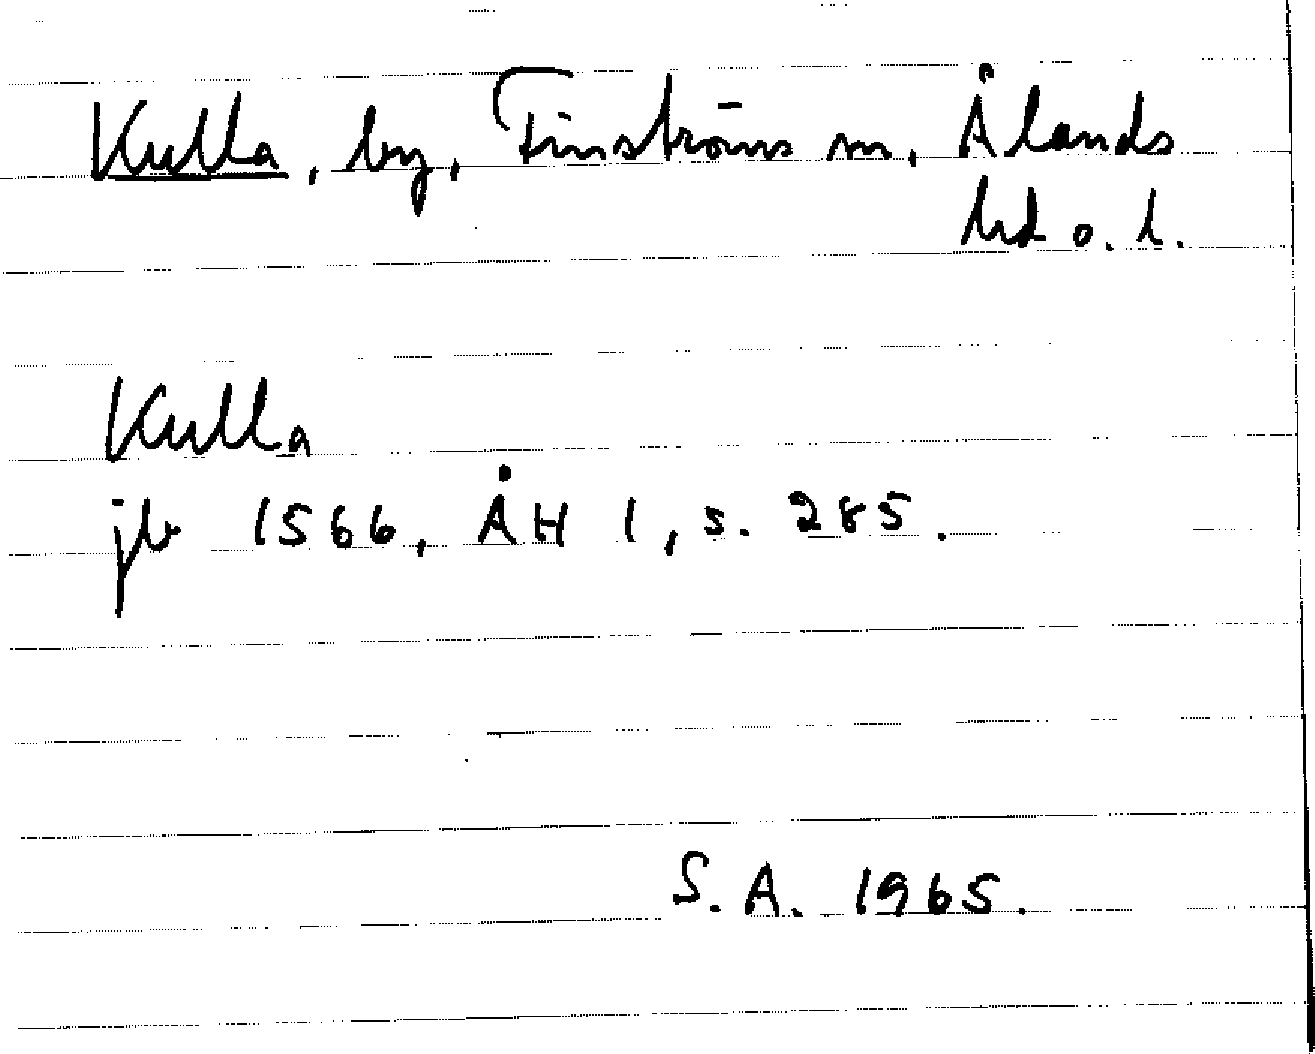 Kulla, by, Finströms sn, Ålands
hd o. l.
Kulla
jb 1566, ÅH 1, s. 285.
S. A. 1965.